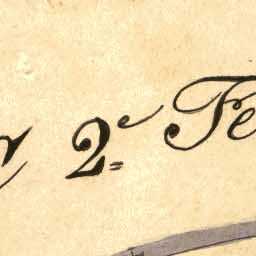 2.e Fe